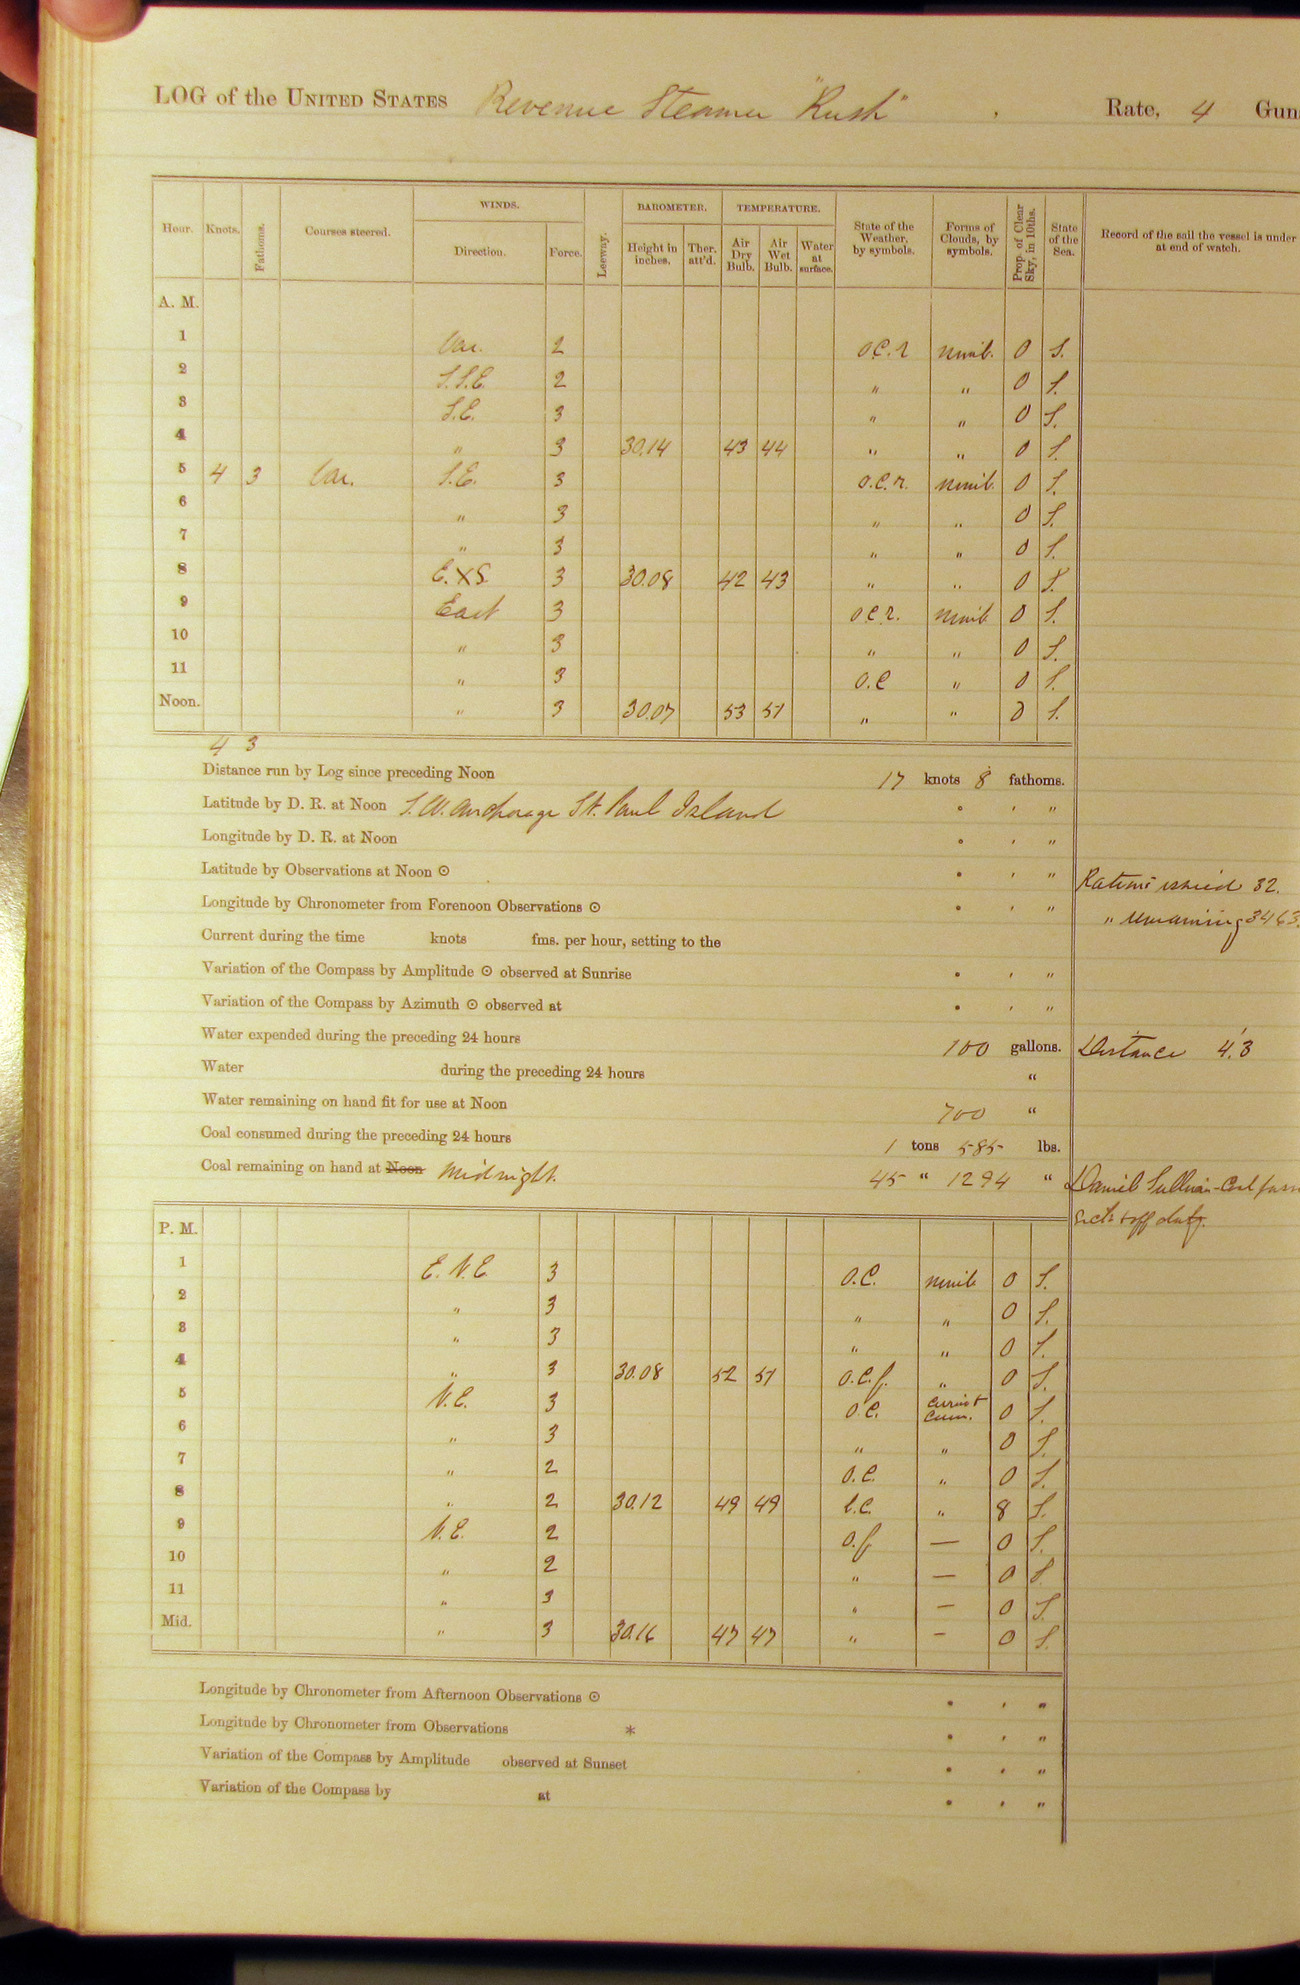 LOG of the UNITED STATES Revenue Steamer "Rush" , Rate, 4 Gun
Hour. Knots. Fathoms. Courses steered. WINDS. Direction. Force. Leeway. BAROMETER. Height in inches. Ther. att'd. TEMPERATURE. Air Dry Bulb. Air Wet Bulb. Water at surface. State of the Weather, by symbols. Forms of Clouds, by symbols. Prop. of Clear Sky, in 10ths. State of the Sea. Record of the sail the vessel is under at end of watch.
A. M.
1 Var. 2 O.C.r nimb. 0 S.
2 S.S.E. 2 " " 0 S.
3 S.E. 3 " " 0 S.
4 " 3 30.14 43 44 " " 0 S.
5 4 3 Var. S.E. 3 O.C.r. nimb. 0 S.
6 " 3 " " 0 S.
7 " 3 " " 0 S.
8 E.XS. 3 30.08 42 43 " " 0 S.
9 East 3 O.C.r. nimb 0 S.
10 " 3 " " 0 S.
11 " 3 O.C " 0 S.
Noon. " 3 30.07 53 51 " " 0 S.
4 3
Distance run by Log since preceding Noon 17 knots 8 fathoms.
Latitude by D. R. at Noon S.W. anchorage St. Paul Island ° ' "
Longitude by D. R. at Noon ° ' "
Latitude by Observations at Noon ⊙ ° ' "
Rations issued 32.
Longitude by Chronometer from Forenoon Observations ⊙ ° ' "
" remaining 3463.
Current during the time knots fms. per hour, setting to the
Variation of the Compass by Amplitude ⊙ observed at Sunrise ° ' "
Variation of the Compass by Azimuth ⊙ observed at ° ' "
Water expended during the preceding 24 hours 100 gallons.
Distance 4.'3
Water during the preceding 24 hours "
Water remaining on hand fit for use at Noon 700 "
Coal consumed during the preceding 24 hours 1 tons 585 lbs.
Coal remaining on hand at Noon Midnight. 45 " 1294 "
Daniel Sullivan - Coal
sick & off duty.
P. M.
1 E.N.E 3 O.C. nimb 0 S.
2 " 3 " " 0 S.
3 " 3 " " 0 S.
4 " 3 30.08 52 51 O.C.f. " 0 S.
5 N.E. 3 O.C. Cum. 0 S.
6 " 3 " " 0 S.
7 " 2 O.C. " 0 S.
8 " 2 30.12 49 49 b.c. " 8 S.
9 N.E. 2 O.f — 0 S.
10 " 2 " — 0 S.
11 " 3 " — 0 S.
Mid. " 3 30.16 47 47 " — 0 S.
Longitude by Chronometer from Afternoon Observations ⊙ ° ' "
Longitude by Chronometer from Observations * ° ' "
Variation of the Compass by Amplitude observed at Sunset ° ' "
Variation of the Compass by at ° ' "